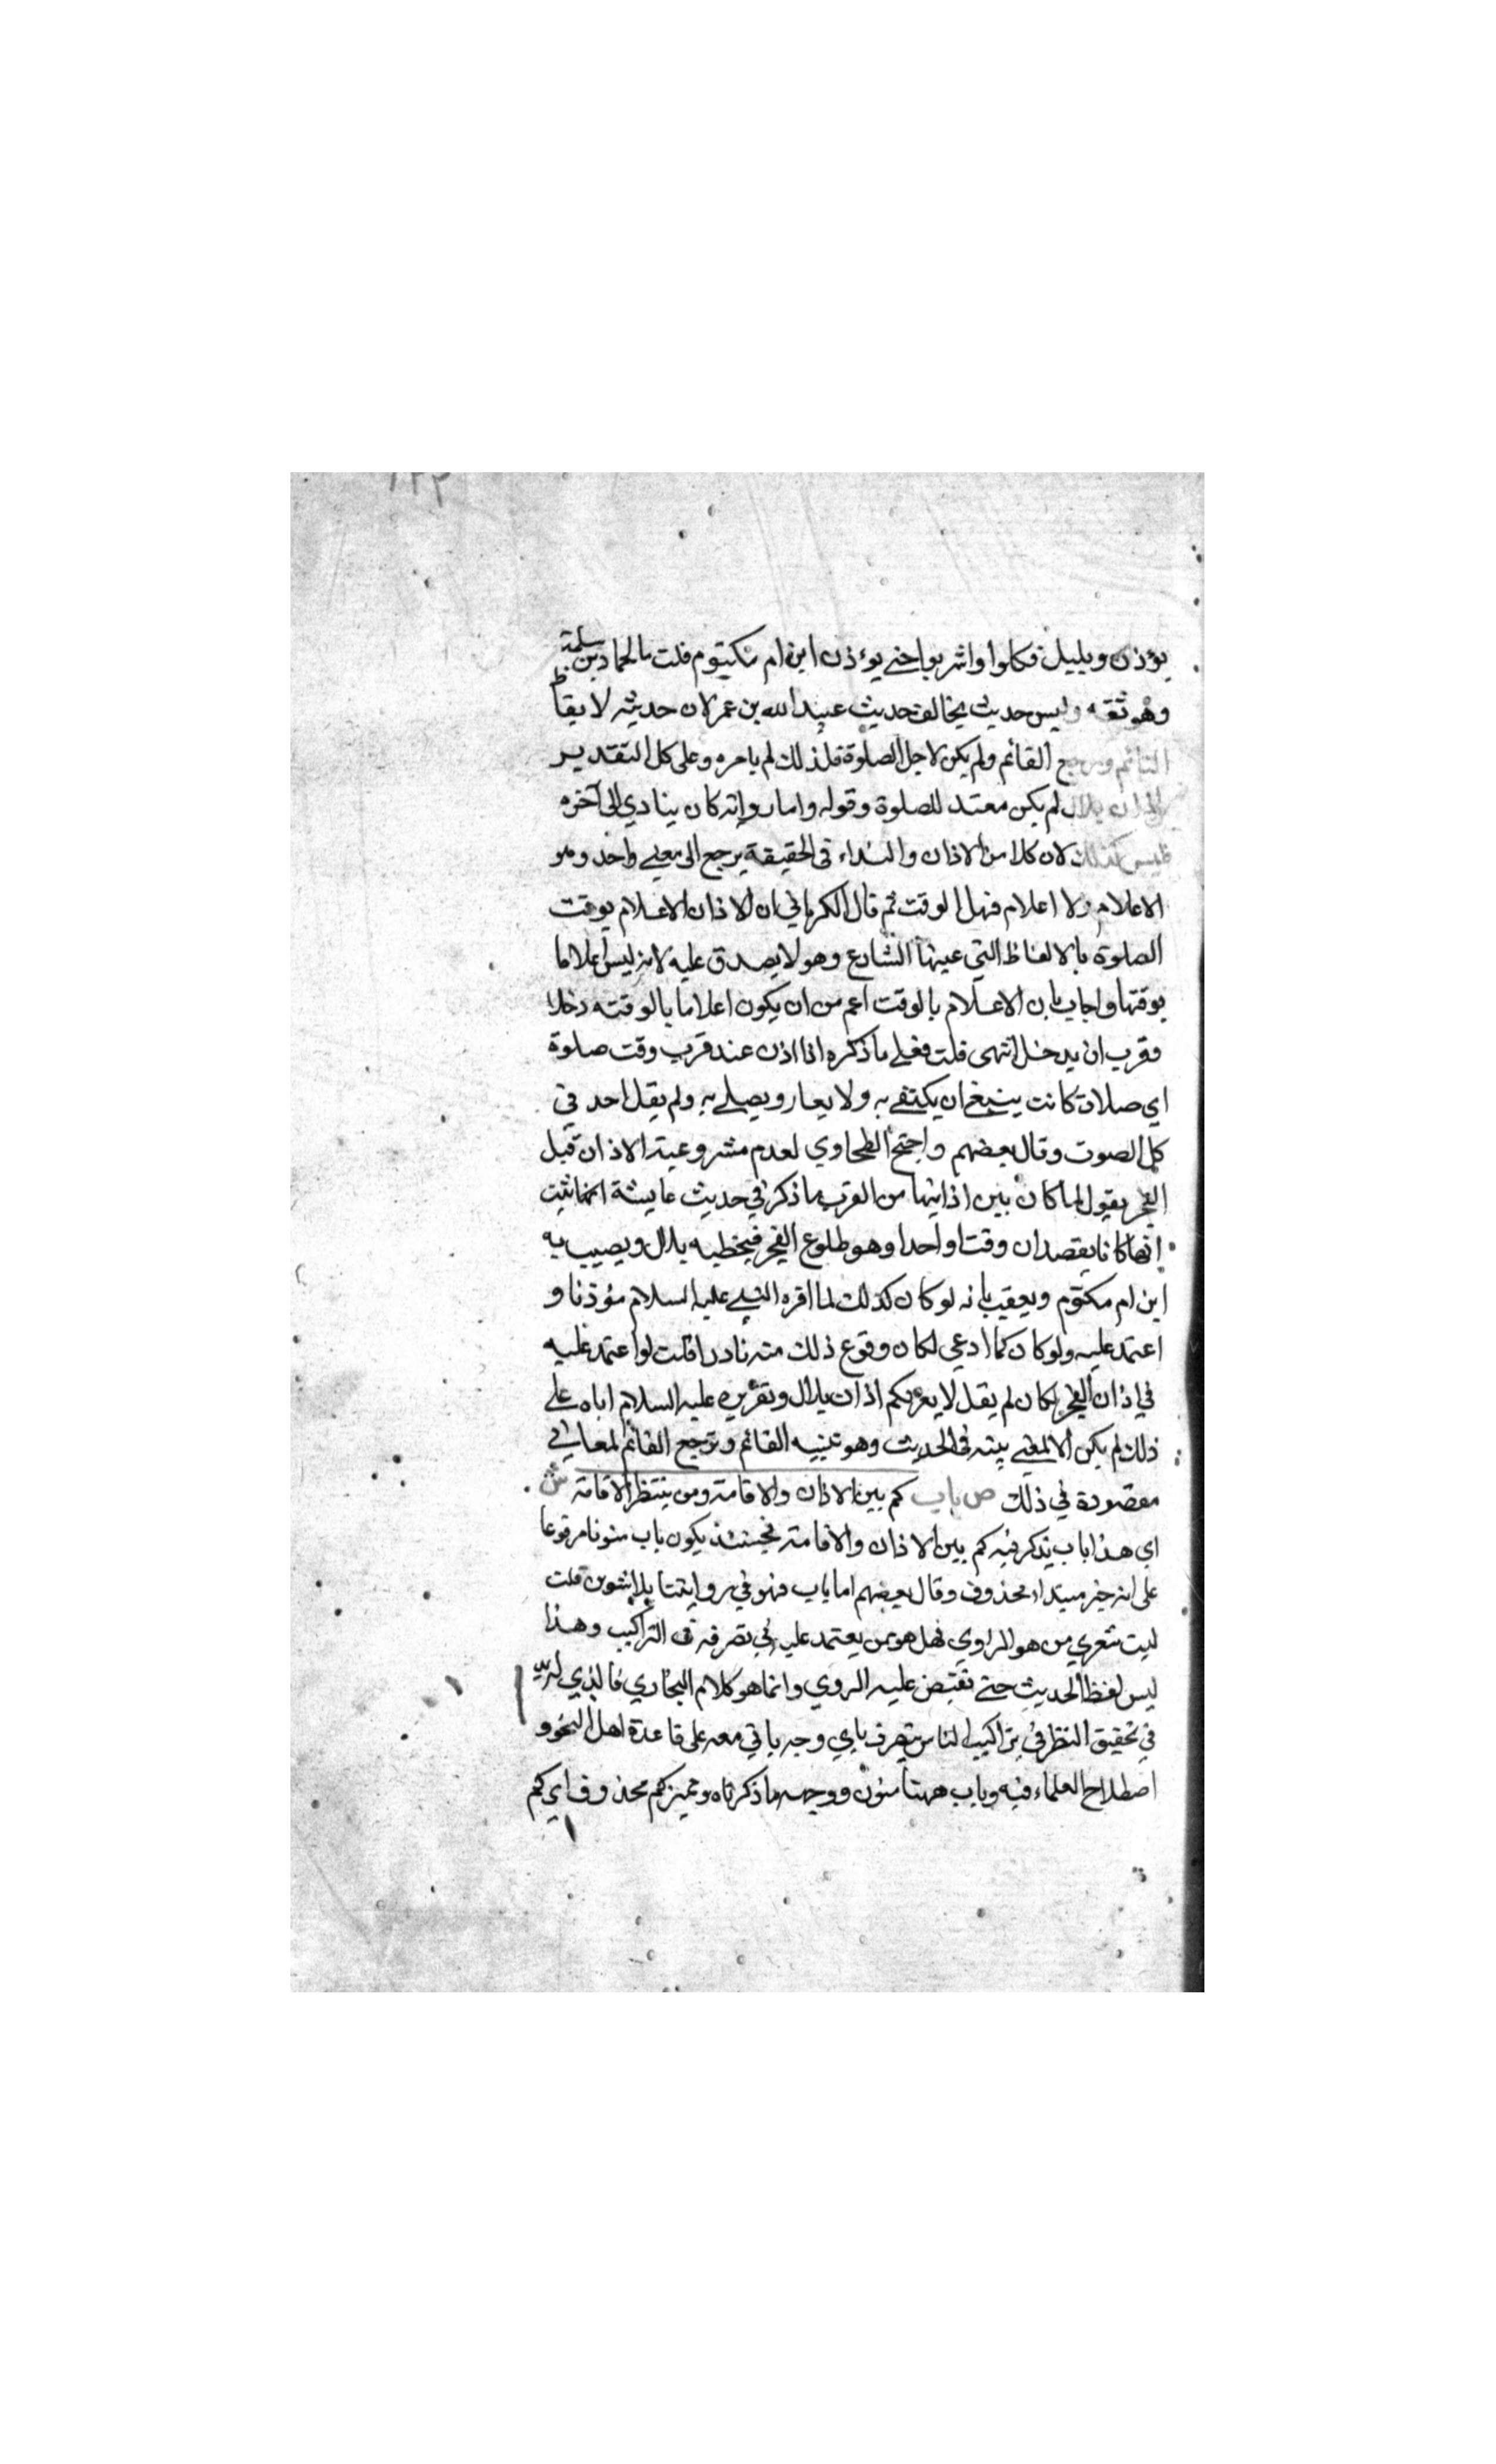 يؤذن وبليل فكلوا واشربوا حتى يوءذن ابن ام مكيتوم قلت مالحماد بن سلمة
وهو ثقة وليس حديث يخالف حديث عبيد الله بن عمر لان حديثه لا يقاظ
النائم ويرجع القائم ولم يكن لاجل الصلوة فلذلك لم يامره وعلى كل التقدير
اذان بلال لم يكن معتد للصلوة وقوله واما روايه كان ينادي الى آخره
فليس كذلك لان كلا من الاذان والنداء في الحقيقة يرجع الى معنى واحد وهو
الاعلام ولا اعلام فهل الوقت ثم قال الكرماني ان الاذان الاعلام بوقت
الصلوة بالالفاظ التي عينها الشارع وهو لا يصدق عليه لانه ليس اعلاما
بوقتها واجاب بان الاعلام بالوقت اعم من ان يكون اعلاما بالوقته دخلا
وقرب ان يدخل انتهى قلت فعلى ما ذكره اذا اذن عند قرب وقت صلوة
اي صلاة كانت ينبغ ان يكتفى به ولا يعار ويصلى به ولم يقل احد في
كل الصوت وقال بعضهم واحتج الطحاوي لعدم مشروعية الاذان قبل
الفجر بقول لما كان بين اذانيها من القرب ما ذكر في حديث عايشة انها ثبت
انهما كانا يقصدان وقتا واحدا وهو طلوع الفجر فيخطيه بلال ويصيب به
ابن ام مكتوم ويعقب بانه لو كان كذلك لما اقره النبي عليه السلام مؤذنا و
اعتمد عليه ولو كان كما ادعى لكان وقوع ذلك منه نادرا قلت لو اعتمد عليه
في اذان الفجر لكان لم يقل لا يغرنكم اذان بلال وتقريره عليه السلام اياه على
ذلك لم يكن الا لمعنى بينه في الحديث وهو تنبيه القائم وترجع القائم لمعاني
مقصودة في ذلك ص باب كم بين الاذان والاقامة ومن ينتظر الاقامة ش
اي هذا باب يذكر فيه كم بين الاذان والاقامة فحينئذ يكون باب منونا مرفوعا
على انه خبر مبتداء محذوف وقال بعضهم اما باب فهو في روايتنا بلا تنوين قلت
ليت شعري من هو الراوي فهل هو ممن يعتمد عليه في تصرفه في التراكيب وهذا
ليس لفظ الحديث حتى تقتض عليه الروي وانما هو كلام البخاري فالذي له يد
في تحقيق النظر في تراكيب الناس يتصرف باي وجه ياتي معه على قاعدة اهل النحو و
اصطلاح العلماء فيه وباب ههنا منون ووجهه ما ذكرناه ومميز كم محذوف اي كم